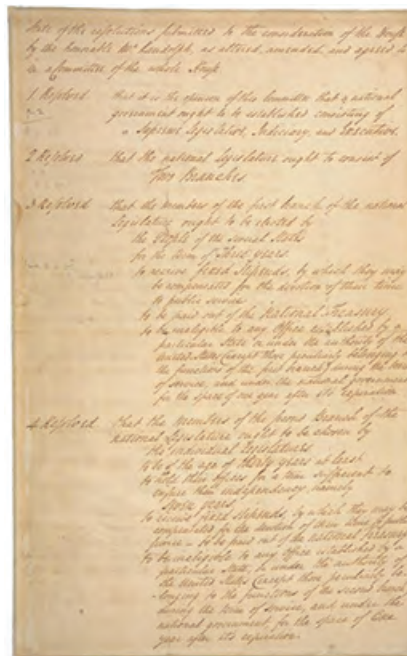 State of the resolutions submitted to the consideration of the House
by the honorable Mr. Randolph, as altered, amended, and agreed to
in a Committee of the whole House
1 Resolved that it is the opinion of this Committee that a national
government ought to be established consisting of
a Supreme Legislative, Judiciary, and Executive.
2 Resolved that the national Legislature ought to consist of
Two Branches.
3 Resolved that the members of the first branch of the national
Legislature ought to be elected by
the People of the several States
for the term of Three years.
to receive fixed stipends, by which they may
be compensated for the devotion of their time
to public service
to be paid out of the National Treasury.
to be ineligible to any Office established by a
particular State or under the authority of the
United States (except those peculiarly belonging to
the functions of the first branch) during the term
of service, and under the national government
for the space of one year after its expiration.
4 Resolved that the members of the second Branch of the
national Legislature ought to be chosen by
the individual Legislatures.
to be of the age of thirty years at least.
to hold their offices for a term sufficient to
ensure their independency, namely
seven years.
to receive fixed stipends, by which they may be
compensated for the devotion of their time to public
service - to be paid out of the National Treasury
to be ineligible to any Office established by a
particular State, or under the authority of
the United States (except those peculiarly be-
longing to the functions of the second branch)
during the term of service, and under the
national government, for the space of One
year after its expiration.